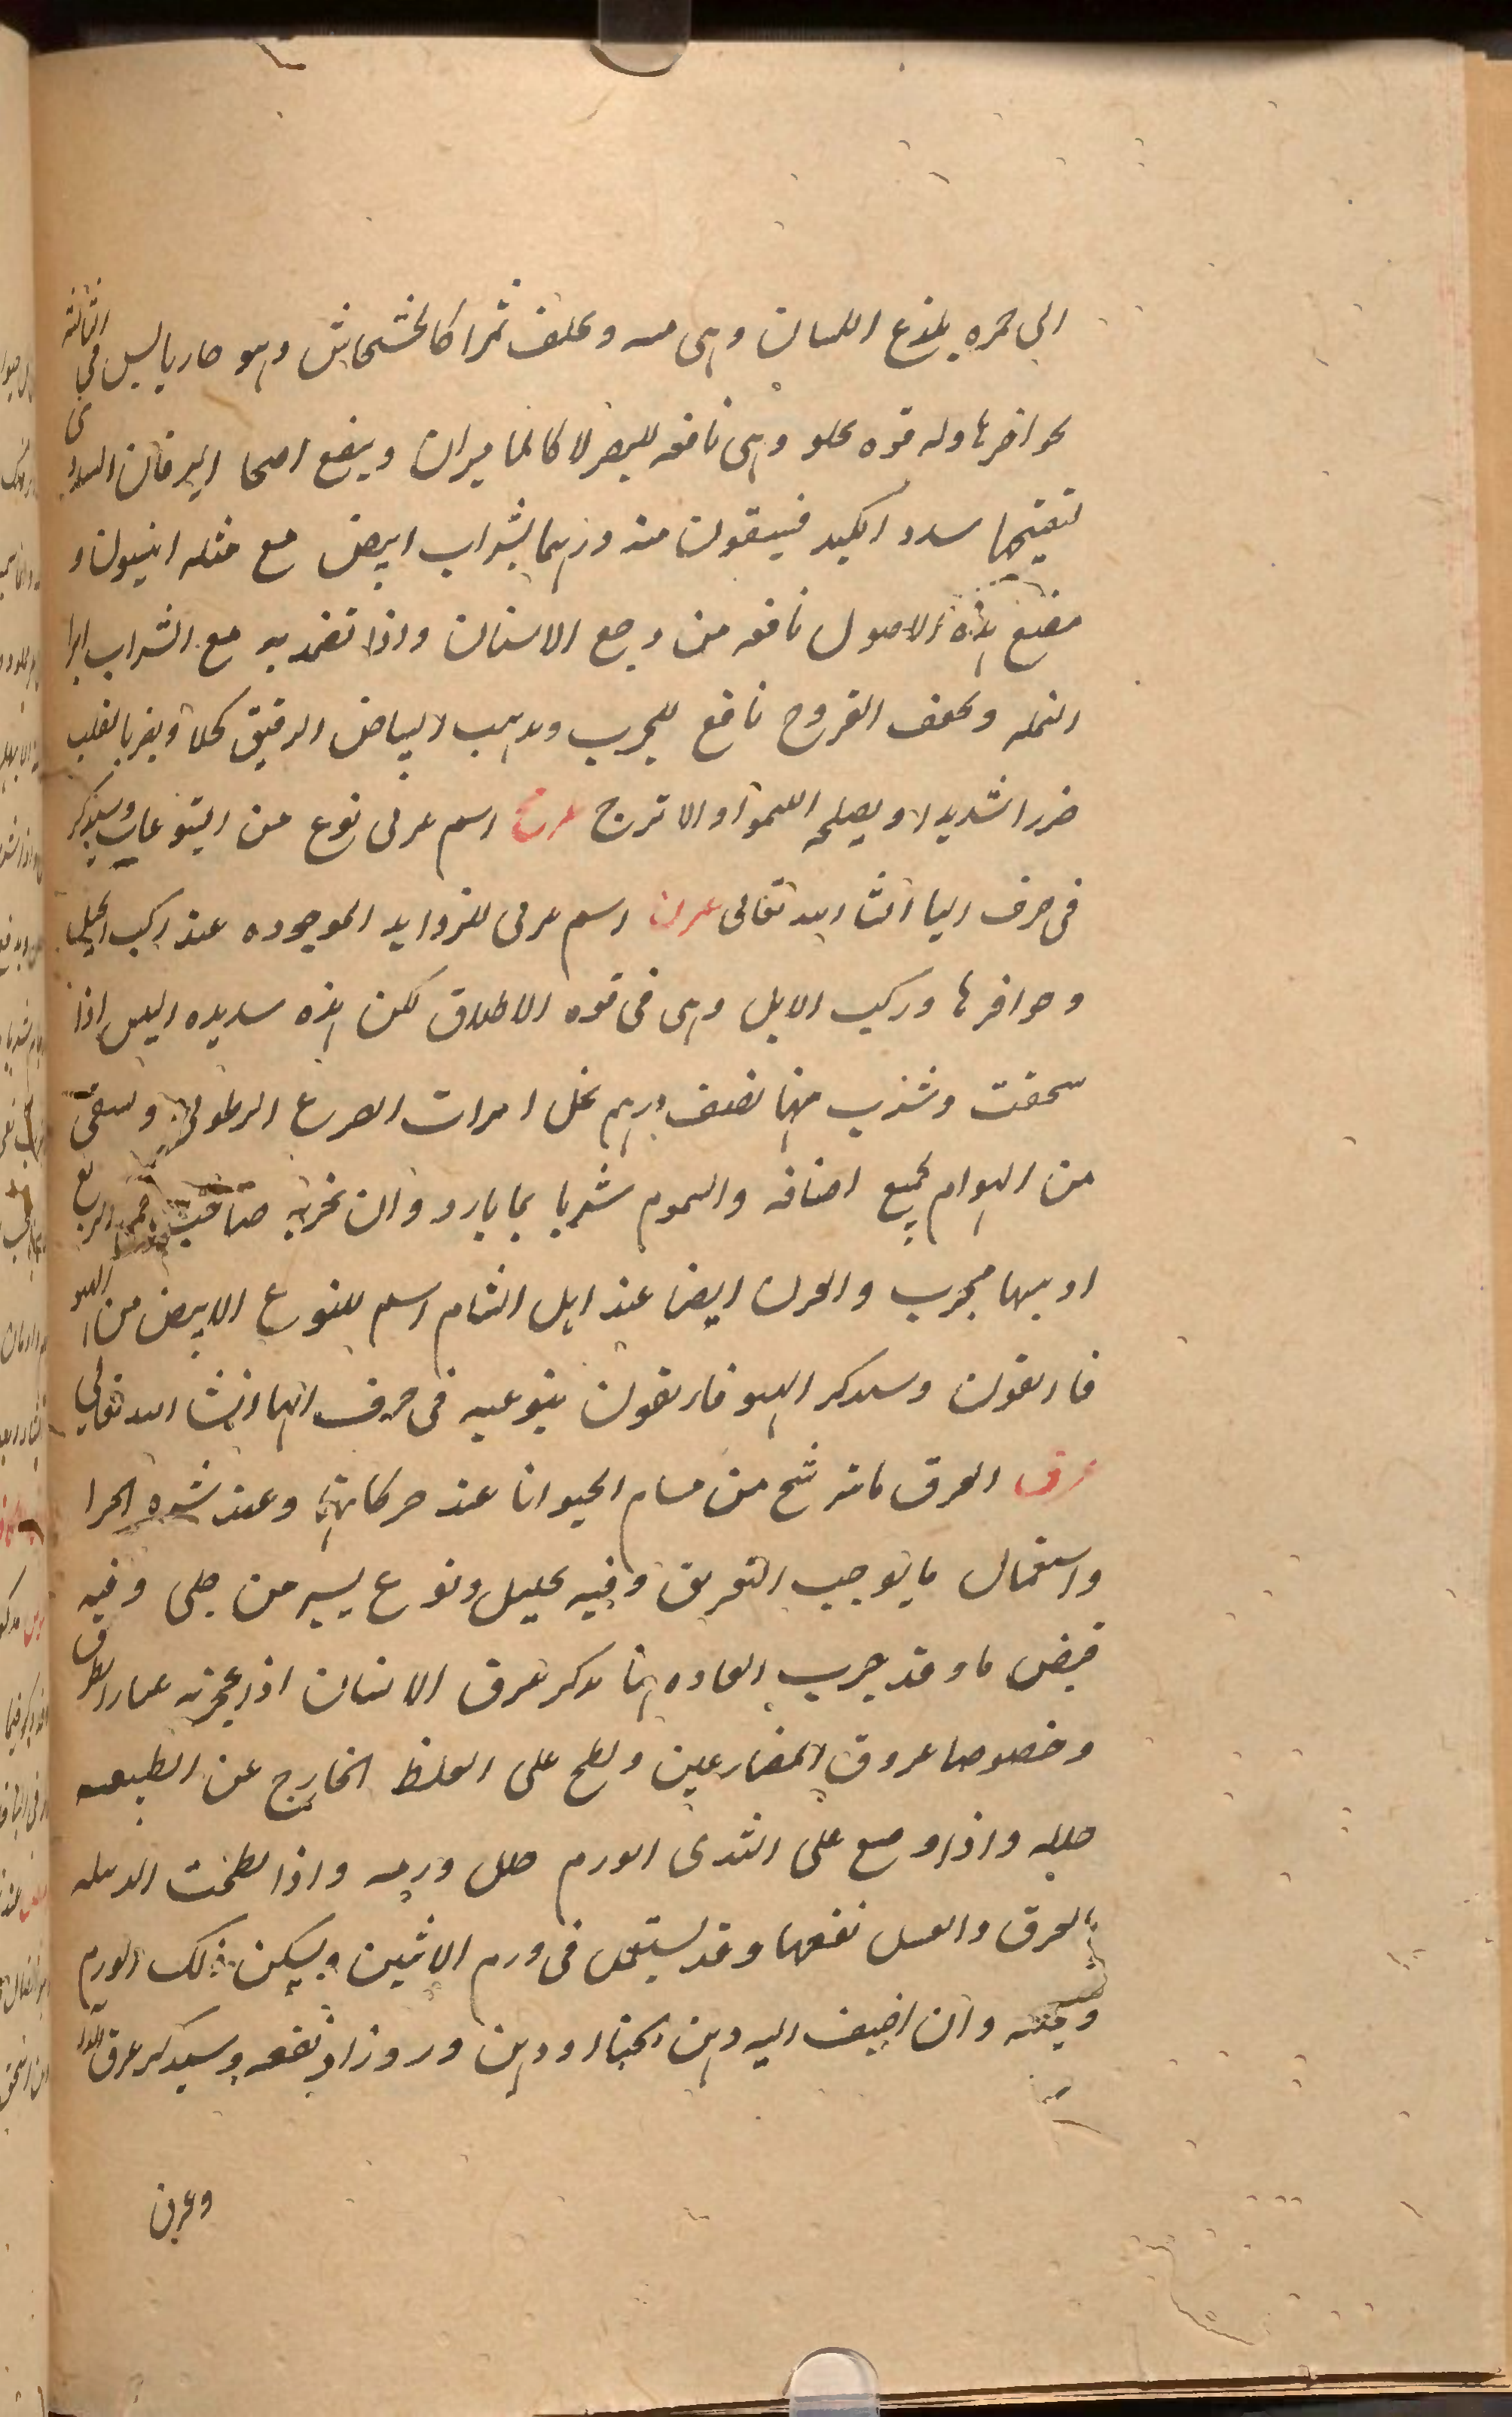 الى حمره يلذع اللسان وهى مسه وىحلف ثمرا كالخشخاش وهو حار يابس فى الثالثة
ىحرافرها وله قوه ىحلو وهى نافعه للبصر لا كالماميران وينفع اصحا اليرقان السددى
لتفتيحها سدد الكبد فيسقون منه درهما بشراب ابيض مع مثله انيسون و
مضغ هذه الاصول نافعه من وجع الاسنان واذا تضمد به مع الشراب ابرا
النمله وىجفف القروح نافع للجرب وىدهب البياض الرقيق كحلا ويضر بالقلب
ضررا شديدا ويصلحه الليموا و الاترج عرىح اسم عربى نوع من اليتوعات وسيذكر
فى حرف اليا انشا الله تعالى عرن اسم عربى للزوايد الموجوده عند ركب الخيل
وحوافرها وركب الابل وهى فى قوه الاظلاق لكن هذه سديده اليبس اذا
سحقت وشرب منها نصف درهم بخل ابرات الصرع الرطوبى وىسعى
من الهوام لجميع اصنافه والسموم شربا بما بارد وان بخر به صاحب حمى الربع
اذهبها مجرب والعرن ايضا عند اهل الشام اسم للنوع الابيض من الهيو
فاريقون وسىدكر الهيوفاريقون بنوعيه فى حرف الها انشا الله تعالى
عرق العرق ما يترشح من مسام الحيوانا عند حركاتها وعند شده الحرا
واستعمال ما يوجب التعريق وفيه ىحليل ونوع يسير من جلى وفيه
قبض ما وقد جرب العاده انما ىدكر عرق الانسان اذا عجن به عىار الطرق
وخصوصا عروق المصارعين ولطخ على الغلظ الخارج عن الطبيعه
حلله واذا وضع على الثدى الورم حلل ورمه واذا لطخت الدىىله
بالعرق والعسل نفعها وقد يستعمل فى ورم الانثيين ويسكن ذلك الورم
وىحلله وان اضيف اليه دهن الحنا او دهن ورد زاد نفعه وسيدكر عرق
وعرن